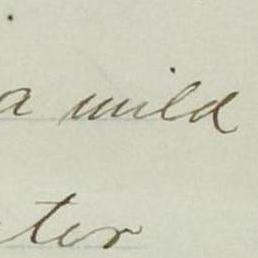 a mild
ter